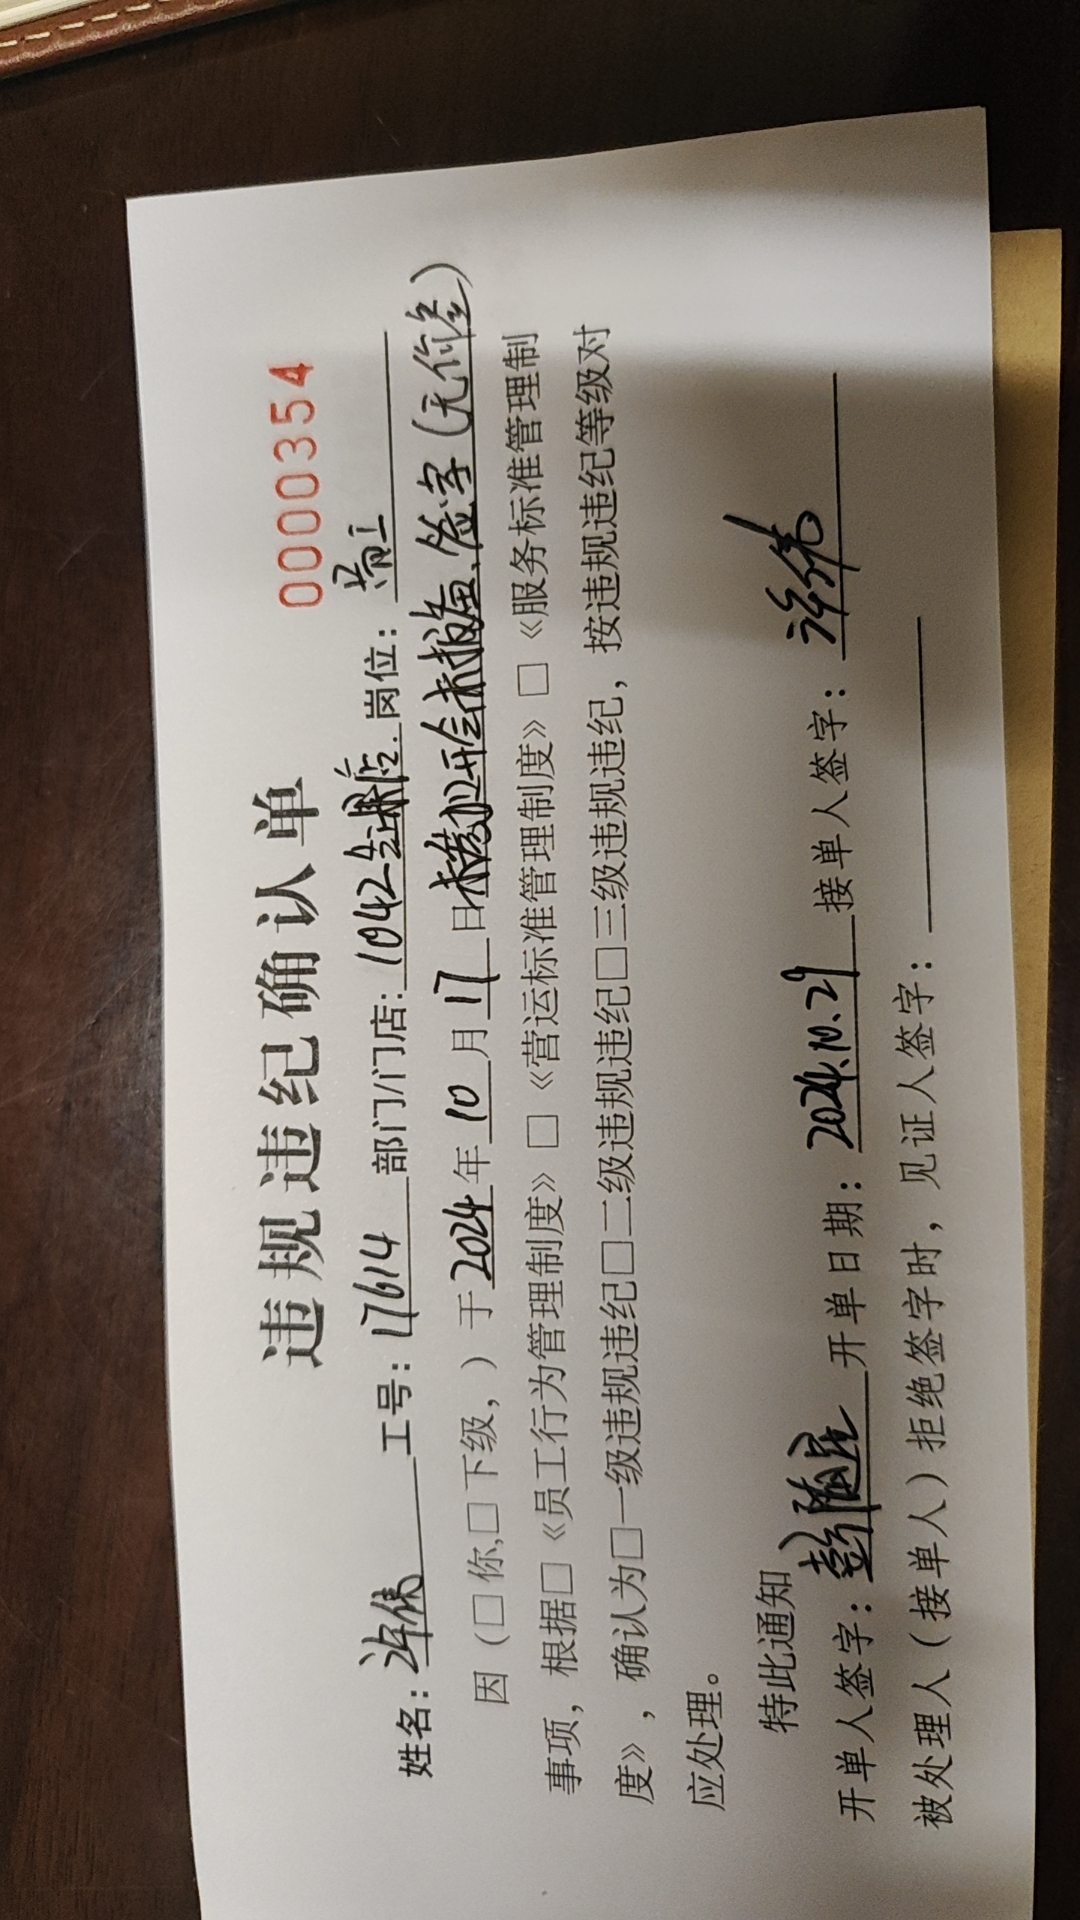 违规违纪确认单
0000354
姓名：许伟 工号：17614 部门/门店：1042 店 岗位：
因（□你，□下级，）于2024年10月17日 签字（无 ）
事项，根据□《员工行为管理制度》□《营运标准管理制度》□《服务标准管理制
度》，确认为□一级违规违纪□二级违规违纪□三级违规违纪，按违规违纪等级对
应处理。
特此通知
开单人签字：彭 开单日期：2024.10.29 接单人签字：许伟
被处理人（接单人）拒绝签字时，见证人签字：